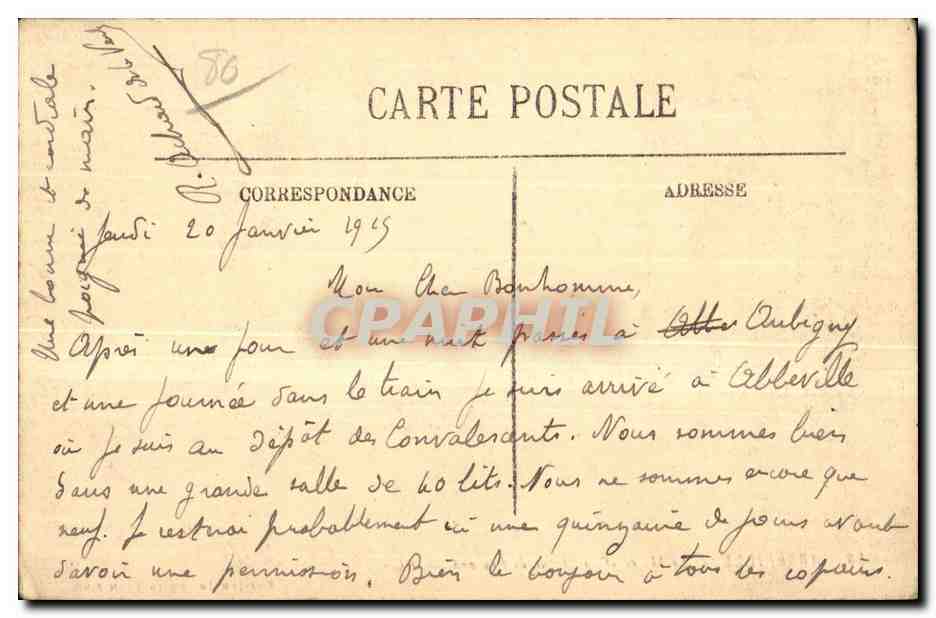 86
CARTE POSTALE
CORRESPONDANCE
ADRESSE
Jeudi 20 Janvier 1915
Mon Cher Bonhomme,
CPAPHIL
Après un jour et une nuit passés à Aubigny
et une journée dans le train je suis arrivé à Abbeville
où je suis au dépôt des Convalescents. Nous sommes bien
dans une grande salle de 40 lits. Nous ne sommes encore que
neuf. Je resterai probablement ici une quinzaine de jours avant
d'avoir une permission. Bien le bonjour à tous les copains.
Une bonne et cordiale
poignée de main.
R.